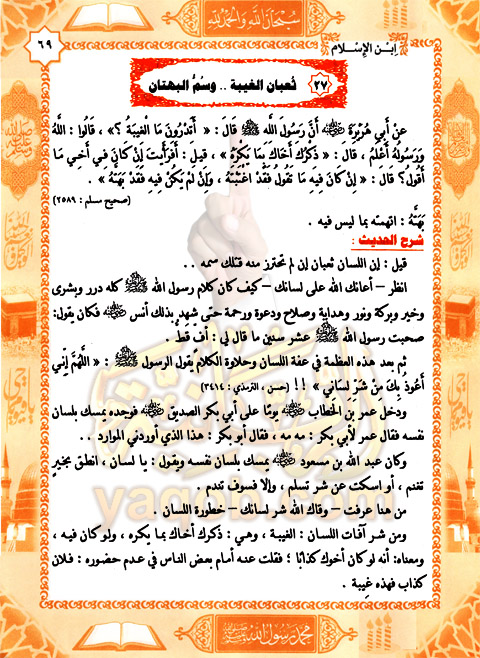 سبحان الله والحمد لله
٦٩
ابن الإسلام
٢٧ ثعبان الغيبة .. وسُمُّ البهتان
عَنْ أَبِي هُرَيْرَةَ ﷺ أَنَّ رَسُولَ اللَّهِ ﷺ قَالَ : « أَتَدْرُونَ مَا الْغِيبَةُ ؟» ، قَالُوا : اللَّهُ
وَرَسُولُهُ أَعْلَمُ ، قَالَ : « ذِكْرُكَ أَخَاكَ بِمَا يَكْرَهُ » ، قِيلَ : أَفَرَأَيْتَ إِنْ كَانَ فِي أَخِي مَا
أَقُولُ ؟ قَالَ : « إِنْ كَانَ فِيهِ مَا تَقُولُ فَقَدْ اغْتَبْتَهُ ، وَإِنْ لَمْ يَكُنْ فِيهِ فَقَدْ بَهَتَّهُ » .
(صحيح مسلم : ٢٥٨٩)
بَهَتَّهُ : اتهمته بما ليس فيه .
شرح الحديث :
قيل : إن اللسان ثعبان إن لم تحترز منه قتلك سمه . .
انظر – أعانك الله على لسانك – كيف كان كلام رسول الله ﷺ كله درر وبشرى
وخير وبركة ونور وهداية وصلاح ودعوة ورحمة حتى شهد بذلك أنس فكان يقول:
صحبت رسول الله ﷺ عشر سنين ما قال لي : أف قطُّ .
ثم بعد هذه العظمة في عفة اللسان وحلاوة الكلام يقول الرسول ﷺ : « اللَّهُمَّ إِنِّي
أَعُوذُ بِكَ مِنْ شَرِّ لِسَانِي » !! (حسن ، الترمذي : ٣٤١٤)
ودخل عمر بن الخطاب يومًا على أبي بكر الصديق فوجده يمسك بلسان
نفسه فقال عمر لأبي بكر : مه مه ، فقال أبو بكر : هذا الذي أوردني الموارد . .
وكان عبد الله بن مسعود يمسك بلسان نفسه ويقول : يا لسان ، انطلق بخير
تغنم ، أو اسكت عن شر تسلم ، وإلا فسوف تندم .
من هنا عرفت – وقاك الله شر لسانك – خطورة اللسان .
ومن شر آفات اللسان : الغيبة ، وهي : ذكرك أخاك بما يكره ، ولو كان فيه ،
ومعناه: أنه لو كان أخوك كذابًا ؛ فقلت عنه أمام بعض الناس في عدم حضوره : فلان
كذاب فهذه غِيبة .
yaqob.com
محمد رسول الله